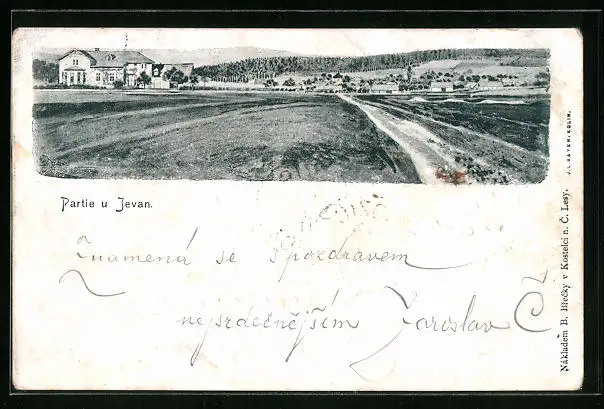 Partie u Jevan.
Znamená se s pozdravem
nejsrdečnějším Jaroslav Č
Nákladem B. Hřečky v Kostelci n. Č. Lesy.